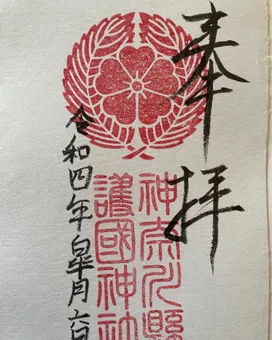 奉拝
神奈川縣
護國神社
令和四年皐月六日